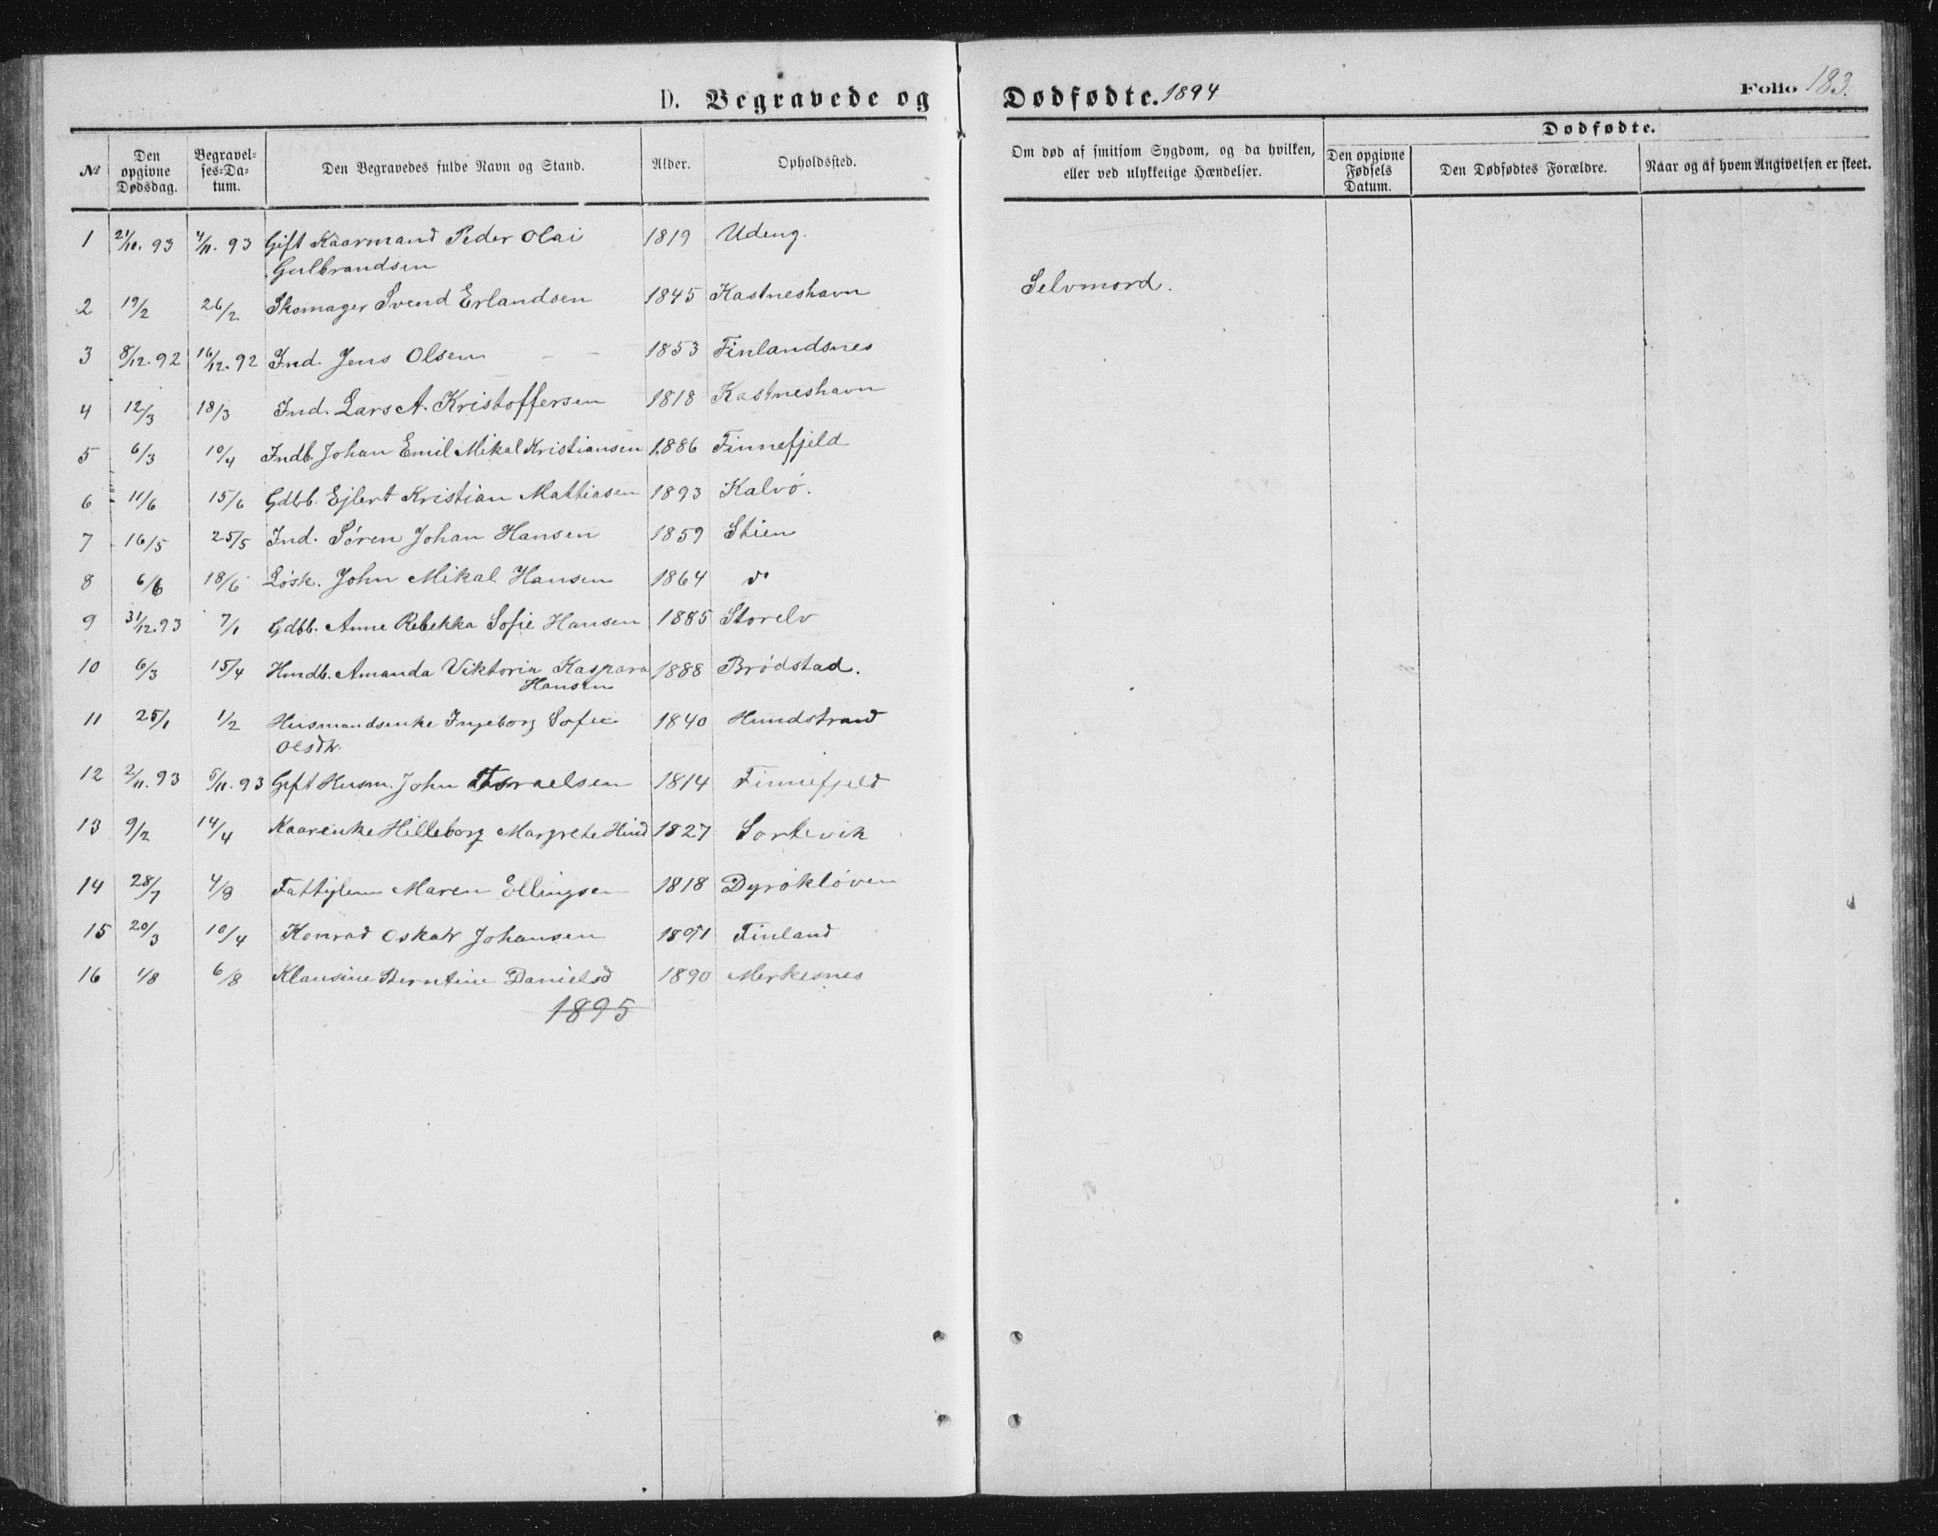 D. Begravede og Dødfødte. 1894 Folio 183.
№ Den opgivne Dødsdag. Begravelses-Datum. Den Begravedes fulde Navn og Stand. Alder. Opholdssted. Om død af smitsom Sygdom, og da hvilken, eller ved ulykkelige Hændelser. Dødfødte. Den opgivne Fødsels Datum. Den Dødfødtes Forældre. Naar og af hvem Angivelsen er skeet.
1 21/10. 93 4/11. 93 Gift Kaarmand Peder Olai 1819 Udeng.
Gulbrandsen
2 19/2 26/2 Skomager Svend Erlandsen 1845 Kastneshavn Selvmord.
3 8/12. 92 16/12. 92 Ind. Jens Olsen 1853 Finlandsnes
4 12/3 18/3 Ind. Lars A. Kristoffersen 1818 Kastneshavn
5 6/3 10/4 Indb. Johan Emil Mikal Kristiansen 1886 Finnefjeld
6 11/6 15/6 Gdbb. Ejlert Kristian Mattiasen 1893 Kalvø.
7 16/5 25/5 Ind. Søren Johan Hansen 1859 Stien
8 6/6 18/6 Løsk. John Mikal Hansen 1864 do
9 31/12. 93 7/1 Gdbb. Anne Rebekka Sofie Hansen 1885 Storelv
10 6/3 15/4 Hmdb. Amanda Viktoria Kaspara 1888 Brødstad.
Hansen
11 25/1 1/2 Husmandsenke Ingeborg Sofie 1840 Hundstrand
Olsdtr.
12 2/11. 93 5/11. 93 Gift Husm. John Israelsen 1814 Finnefjeld
13 9/2 14/4 Kaarenke Hilleborg Margrete Hind 1827 Sortevik
14 28/7 4/8 Fattiglem Maren Ellingsen 1818 Dyrøkløven
15 20/3 10/4 Konrad Oskar Johansen 1891 Finland
16 1/8 6/8 Klausine Berntine Danielsd 1890 Merkesnes
1895